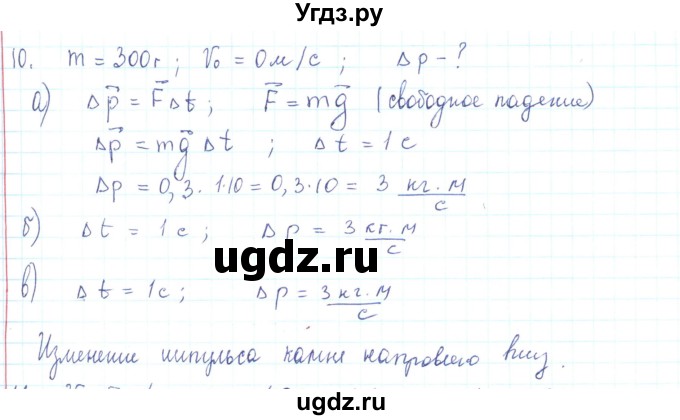 Угдз.ру
10. m = 300г ; V₀ = 0 м/с ; Δp - ?
а) Δp⃗ = F⃗Δt ; F⃗ = mg⃗ (свободное падение)
Δp⃗ = mg⃗ Δt ; Δt = 1 с
Δp = 0,3 · 1·10 = 0,3·10 = 3 кг·м/с
б) Δt = 1 с ; Δp = 3 кг·м/с
uгдз.ru
в) Δt = 1с ; Δp = 3 кг·м/с
Изменение импульса камня направлено вниз.
uгдз.ru